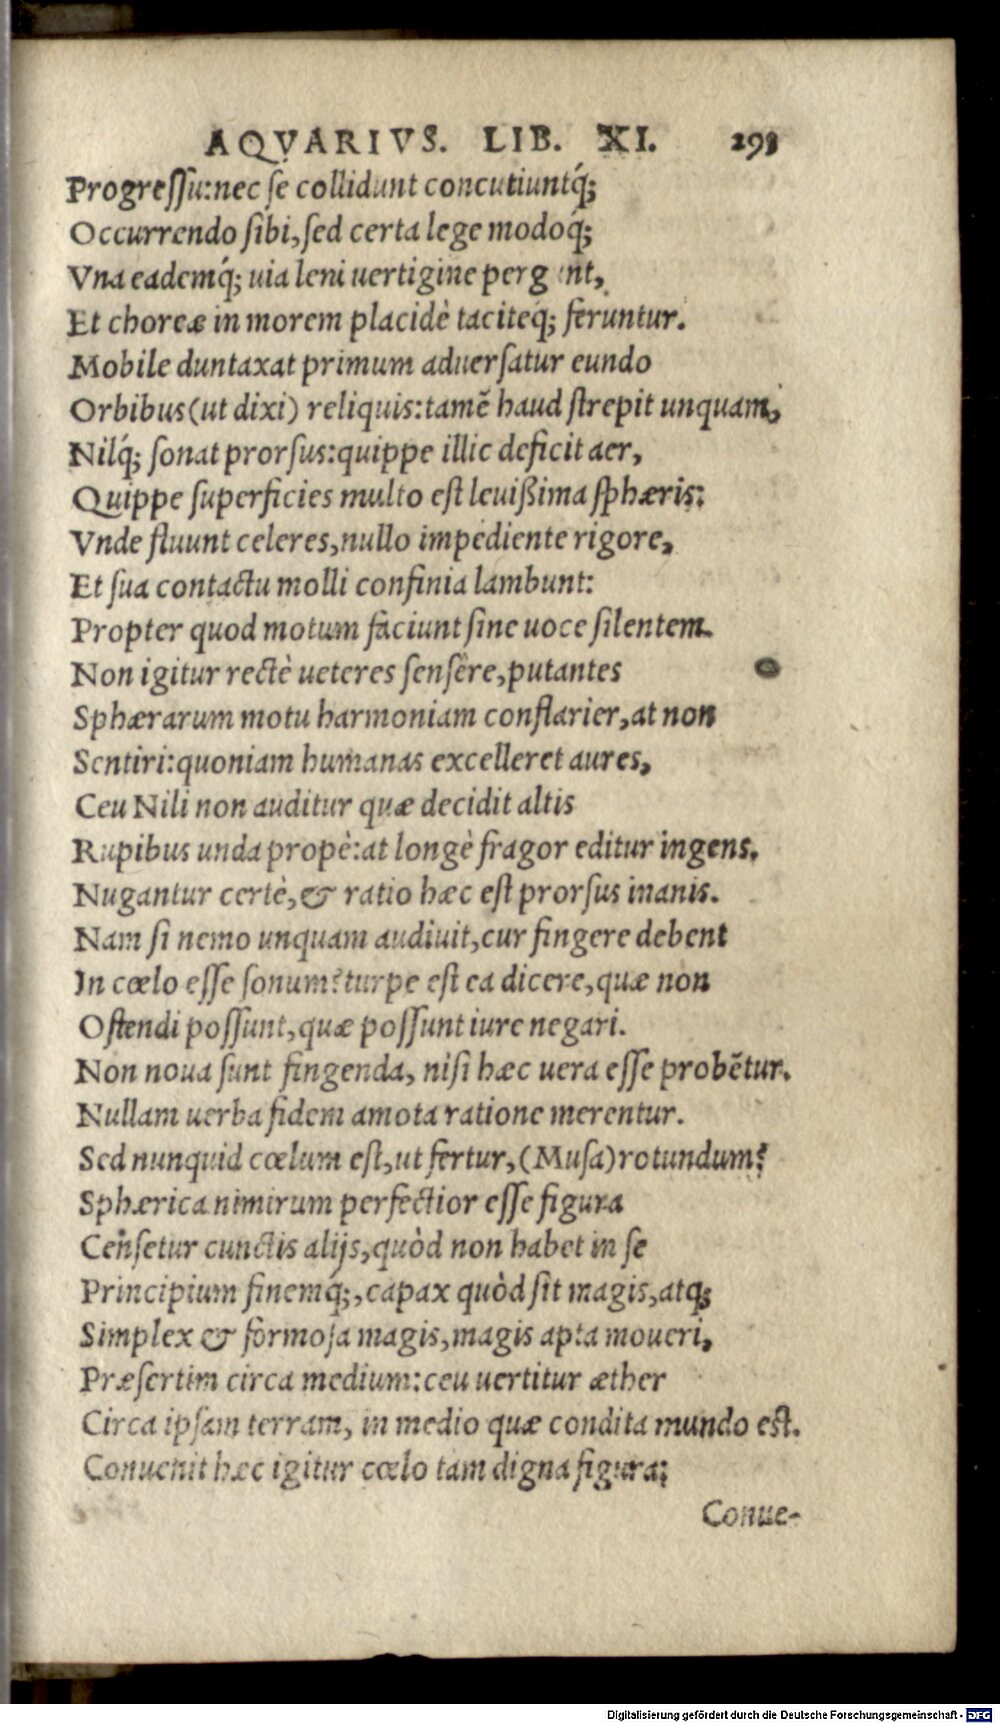 AQVARIVS. LIB. XI. 293
Progreſſu:nec ſe collidunt concutiuntq́;
Occurrendo ſibi,ſed certa lege modoq́;
Vna eademq́; uia leni uertigine perg nt,
Et choreæ in morem placidè taciteq́; feruntur.
Mobile duntaxat primum aduerſatur eundo
Orbibus(ut dixi) reliquis:tamẽ haud ſtrepit unquam,
Nilq́; ſonat prorſus:quippe illic deficit aer,
Quippe ſuperficies multo eſt leuißima ſphæris:
Vnde fluunt celeres,nullo impediente rigore,
Et ſua contactu molli confinia lambunt:
Propter quod motum faciunt ſine uoce ſilentem.
Non igitur rectè ueteres ſenſêre,putantes
Sphærarum motu harmoniam conflarier,at non
Sentiri:quoniam humanas excelleret aures,
Ceu Nili non auditur quæ decidit altis
Rupibus unda propè:at longè fragor editur ingens.
Nugantur certè,& ratio hæc eſt prorſus inanis.
Nam ſi nemo unquam audiuit,cur fingere debent
In cœlo eſſe ſonum?turpe eſt ea dicere,quæ non
Oſtendi poſſunt,quæ poſſunt iure negari.
Non noua ſunt fingenda, niſi hæc uera eſſe probẽtur.
Nullam uerba fidem amota ratione merentur.
Sed nunquid cœlum eſt,ut fertur,(Muſa)rotundum?
Sphærica nimirum perfectior eſſe figura
Cenſetur cunctis alijs,quòd non habet in ſe
Principium finemq́;,capax quòd ſit magis,atq;
Simplex & formoſa magis,magis apta moueri,
Præſertim circa medium:ceu uertitur æther
Circa ipſam terram, in medio quæ condita mundo eſt.
Conuenit hæc igitur cœlo tam digna figura:
Conue-
Digitalisierung gefördert durch die Deutsche Forschungsgemeinschaft - DFG